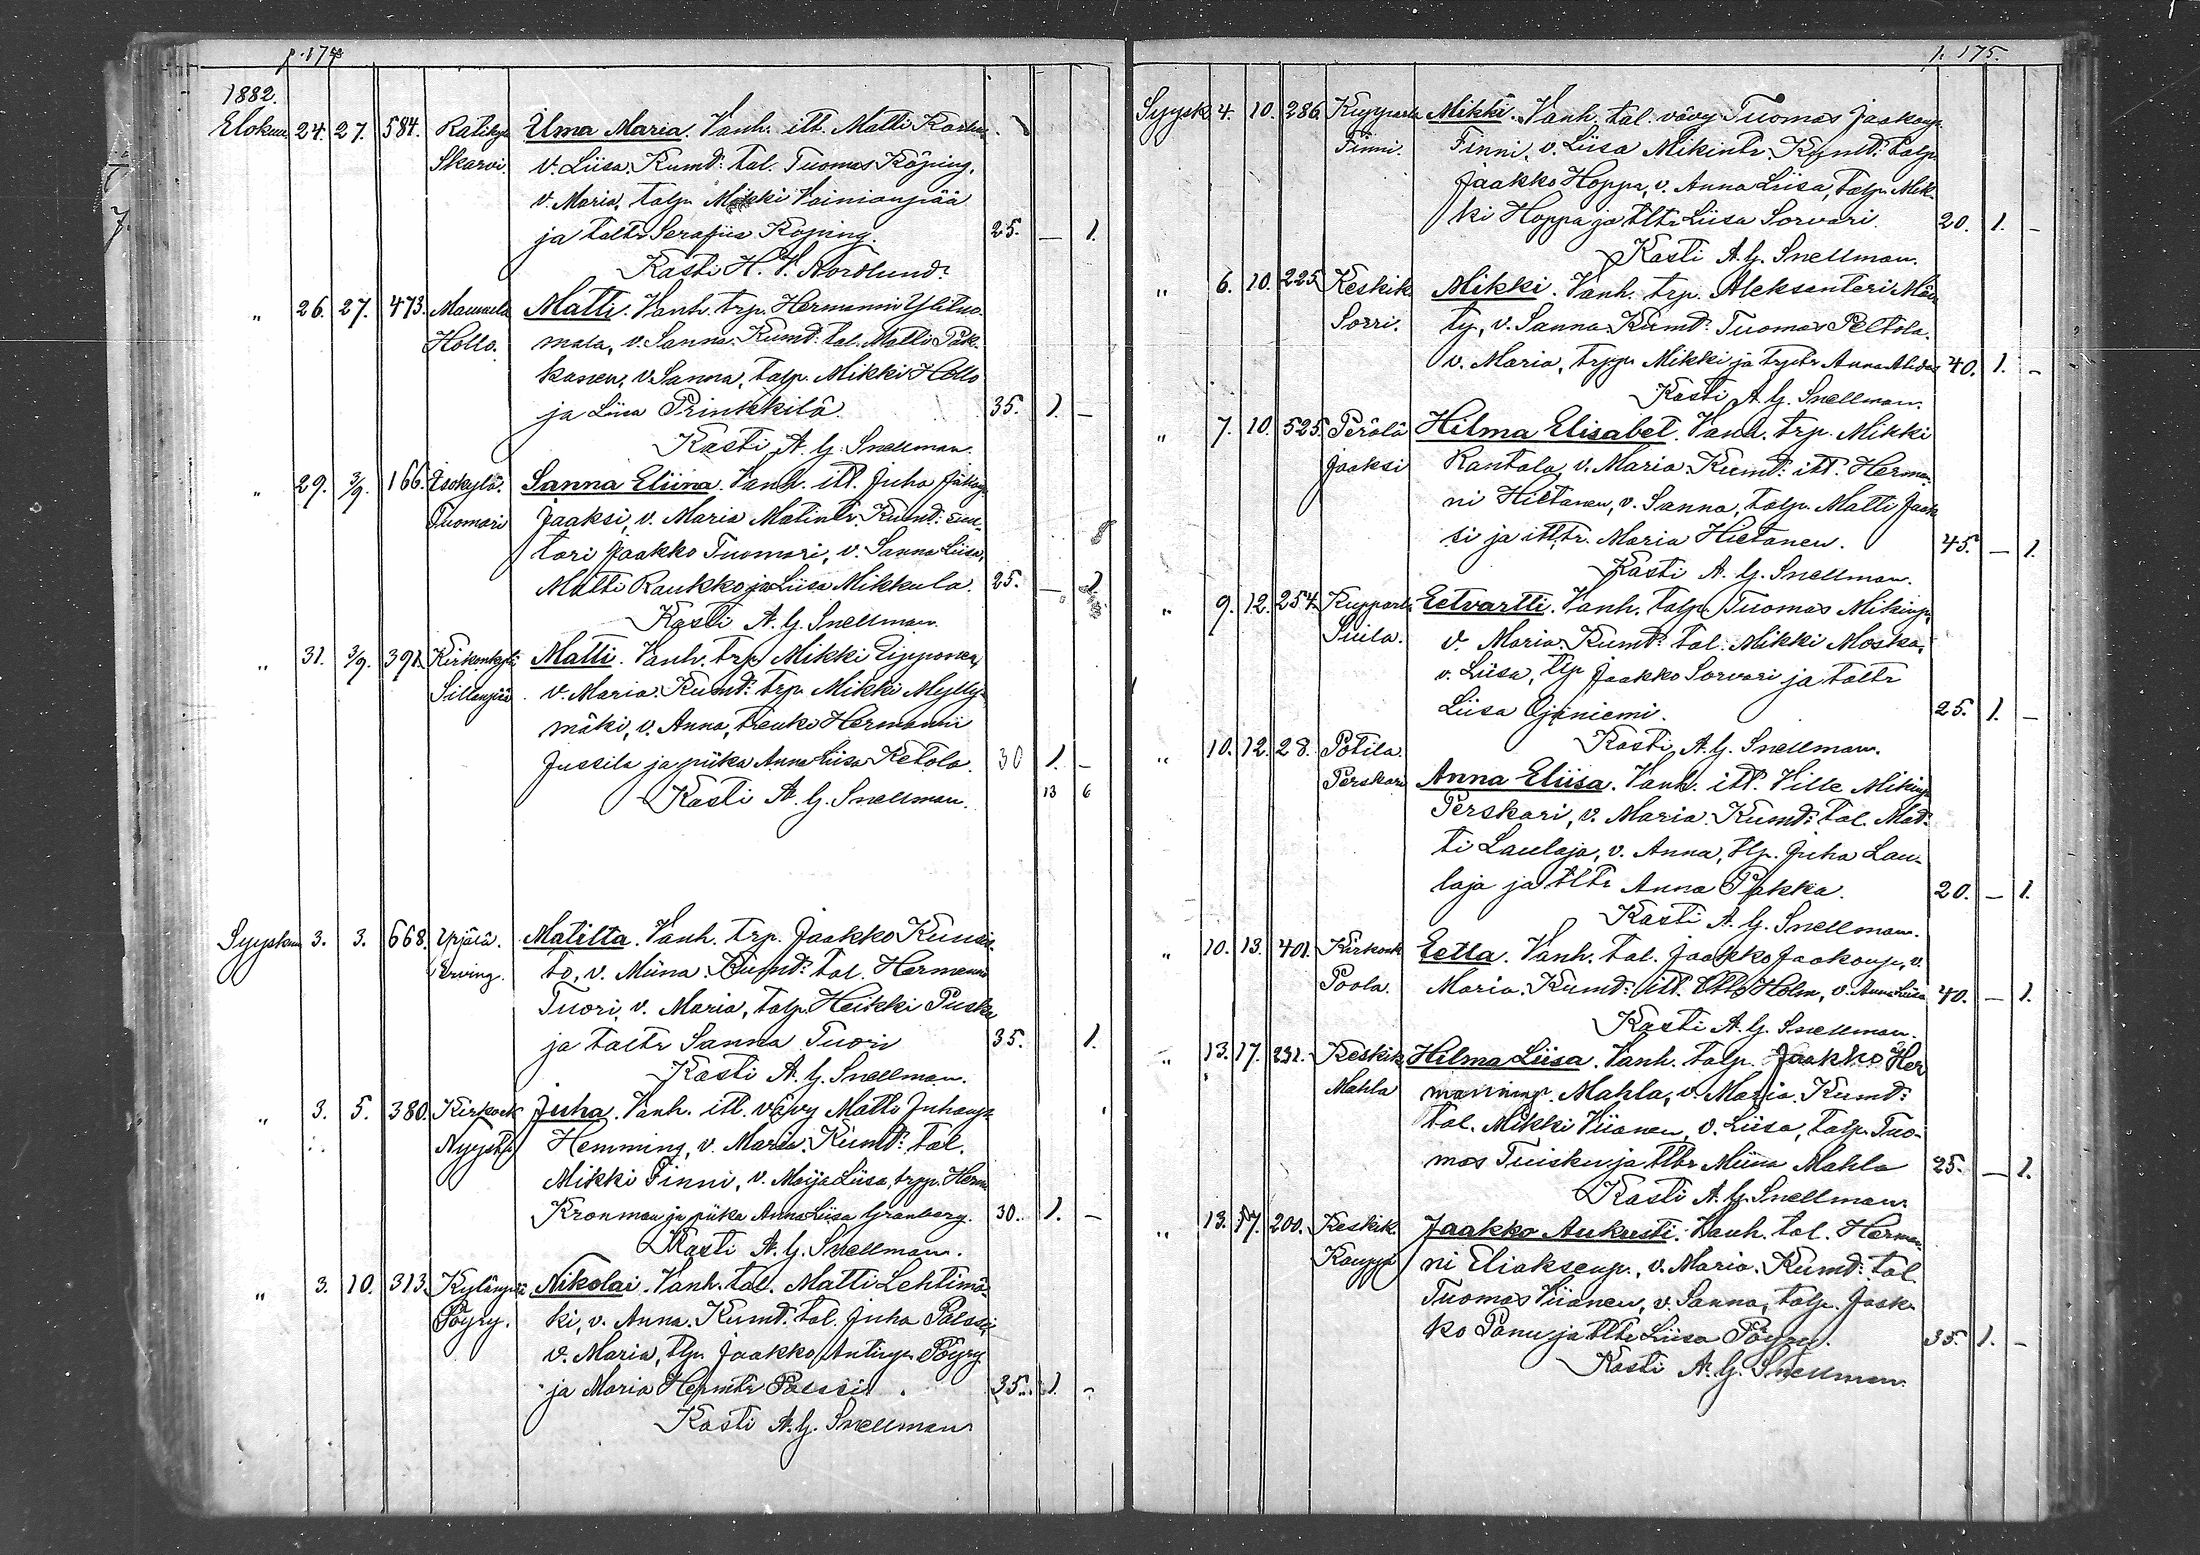 p. 174
1882.
Elokuu 24. 27. 584. Ratikylä Elma Maria. Vanh. itl. Matti
Skarvi. v. Liisa. Kumd: tal. Tuomas Köping,
v. Maria, talp. Mikki Vainionpää
ja taltr Serafiia Köping. 25. — 1.
Kasti H. V. Nordlund.
" 26. 27. 473. Matti. Vanh. trp. Hermanni Ylituo-
Hollo. mala, v. Sanna. Kumd: tal. Matti Päk-
kanen, v. Sanna, talp. Mikki Hollo
ja Liisa Prinkkilä. 35. 1. —
Kasti A. G. Snellman.
" 29. 3/9. 166. Isokylä. Sanna Eliina. Vanh. itl. Juha Jaakonp.
Tuomari Jaaksi, v. Maria Matintr. Kumd:
tari Jaakko Tuomari, v. Sanna Liisa,
Matti Raukko ja Liisa Mikkola. 25. — 1.
Kasti A. G. Snellman.
" 31. 3/9. 391. Kirkonkylä Matti. Vanh. trp. Mikki Eipponen,
Sillanpää v. Maria. Kumd: trp. Mikki Mylly-
mäki, v. Anna, trenki Hermanni
Jussila ja piika Anna Liisa Ketola. 30 1. —
Kasti A. G. Snellman. 13 6
Syyskuu 3. 3. 668. Ypjätä. Matilta. Vanh. trp. Jaakko Kunais-
Erving. to, v. Miina. Kumd: tal. Hermanni
Tuori, v. Maria, talp. Heikki Puska
ja taltr Sanna Tuori 35. 1.
Kasti A. G. Snellman.
" 3. 5. 380. Kirkonk Juha. Vanh. itl. vävy Matti Juhanp.
Nyysti Hemming, v. Maria. Kumd: tal.
Mikki Finni, v. Maija Liisa, trpp. Herm.
Kronman ja piika Anna Liisa Granberg. 30. 1. —
Kasti A. G. Snellman.
" 3. 10. 313. Kylänpää Nikolai. Vanh. tal. Matti Lehtimä-
Pöyry. ki, v. Anna. Kumd. tal. Juha Palssi,
v. Maria, tlp. Jaakko Antinp. Pöyry
ja Maria Hermtr Palssi. 35. 1. -
Kasti A. G. Snellman
p. 175.
Syysk 4. 10. 286. Kuppari Mikki. Vanh. tal. vävy Tuomas Jaakonp.
Finni. Finni, v. Liisa Mikintr. Kumd: talp.
Jaakko Hoppa, v. Anna Liisa, talp. Mik-
ki Hoppa ja tltr Liisa Sorvari. 20. 1. —
Kasti A. G. Snellman.
" 6. 10. 225. Keskik. Mikki. Vanh. trp. Aleksanteri Män-
Sorri. ty, v. Sanna. Kumd: Tuomas Peltola.
v. Maria, trpp. Mikki ja trptr Anna 40. 1. —
Kasti A. G. Snellman.
" 7. 10. 525. Perälä Hilma Elisabet. Vanh. trp. Mikki
Jaaksi Rantala, v. Maria. Kumd: itl. Herman-
ni Hietanen, v. Sanna, talp. Matti Jaak-
si ja itltr. Maria Hietanen. 45. — 1.
Kasti A. G. Snellman.
" 9. 12. 254. Kuppari Eetvartti. Vanh. talp. Tuomas Mikinp.,
Suila. v. Maria. Kumd: tal. Mikki Moska,
v. Liisa, tlp Jaakko Sorvari ja taltr
Liisa Ojaniemi. 25. 1. —
Kasti A. G. Snellman.
" 10. 12. 28. Potila
Perskari Anna Eliisa. Vanh. itl. Ville Mikinp.
Perskari, v. Maria. Kumd: tal. Mat-
ti Laulaja, v. Anna, tlp. Juha Lau-
laja ja tltr Anna Pakka. 20. — 1.
Kasti A. G. Snellman.
" 10. 13. 401. Kirkonk Eetla. Vanh. tal. Jaakko Jaakonp., v.
Poola. Maria. Kumd: itl. Otto Holm, v. Anna Liisa 40. — 1.
Kasti A. G. Snellman.
" 13. 17. 231. Keskik Hilma Liisa. Vanh. talp. Jaakko Her
Mahla manninp. Mahla, v. Maria. Kumd:
tal. Mikki Viianen, v. Liisa, talp. Tuo-
mas Tuisku ja tltr Miina Mahla 25. — 1.
Kasti A. G. Snellman.
" 13. 17. 200. Keskik. Jaakko Aukusti. Vanh. tal. Herman-
Kauppi ni Eliaksenp., v. Maria. Kumd: tal.
Tuomas Viianen, v. Sanna, talp. Jaak-
ko Panu ja tltr Liisa Pöyry. 35. 1. —
Kasti A. G. Snellman.